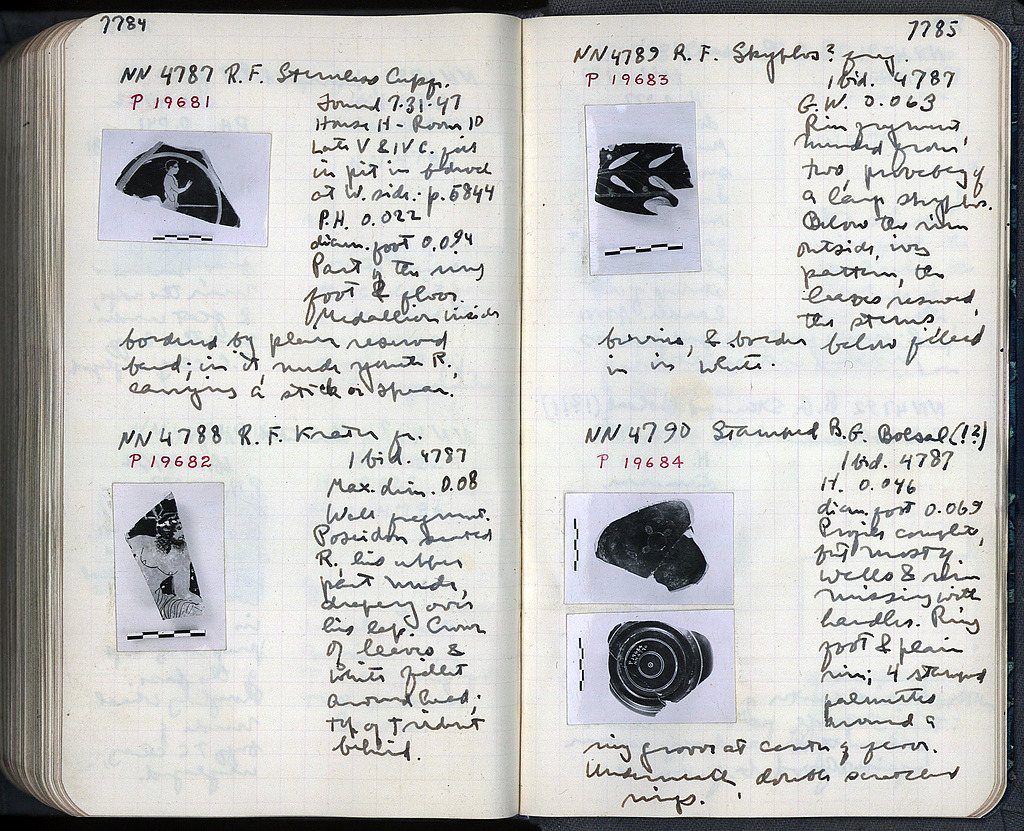 7784
NN 4787 R.F. Stemless Cup fr.
P 19681
Found 7.31.47
House H - Room 10
Late V & IV C. fill
in pit in bedrock
at W. side: p. 5844
P.H. 0.022
diam. foot 0.094
Part of the ring
foot & floor.
Medallion inside
bordered by plain reserved
band; in it, nude youth R.,
carrying a stick or spear.
NN 4788 R.F. Krater fr.
P 19682
Ibid. 4787
Max. dim. 0.08
Wall fragment.
Poseidon seated
R., his upper
part nude,
drapery over
his lap. Crown
of leaves &
white fillet
around head;
top of trident
behind.
7785
NN 4789 R.F. Skyphos? frag.
P 19683
Ibid. 4787
G.W. 0.063
Rim fragment,
mended from
two, probably of
a large skyphos.
Below the rim
outside, ivy
pattern, the
leaves reserved,
the stems,
berries, & border below filled
in in white.
NN 4790 Stamped B.G. Bolsal (!?)
P 19684
Ibid. 4787
H. 0.046
diam. foot 0.069
Profile complete,
but mostly
walls & rim
missing with
handles. Ring
foot & plain
rim; 4 stamped
palmettes
around a
ring groove at center of floor.
Underneath, double scraped
rings.